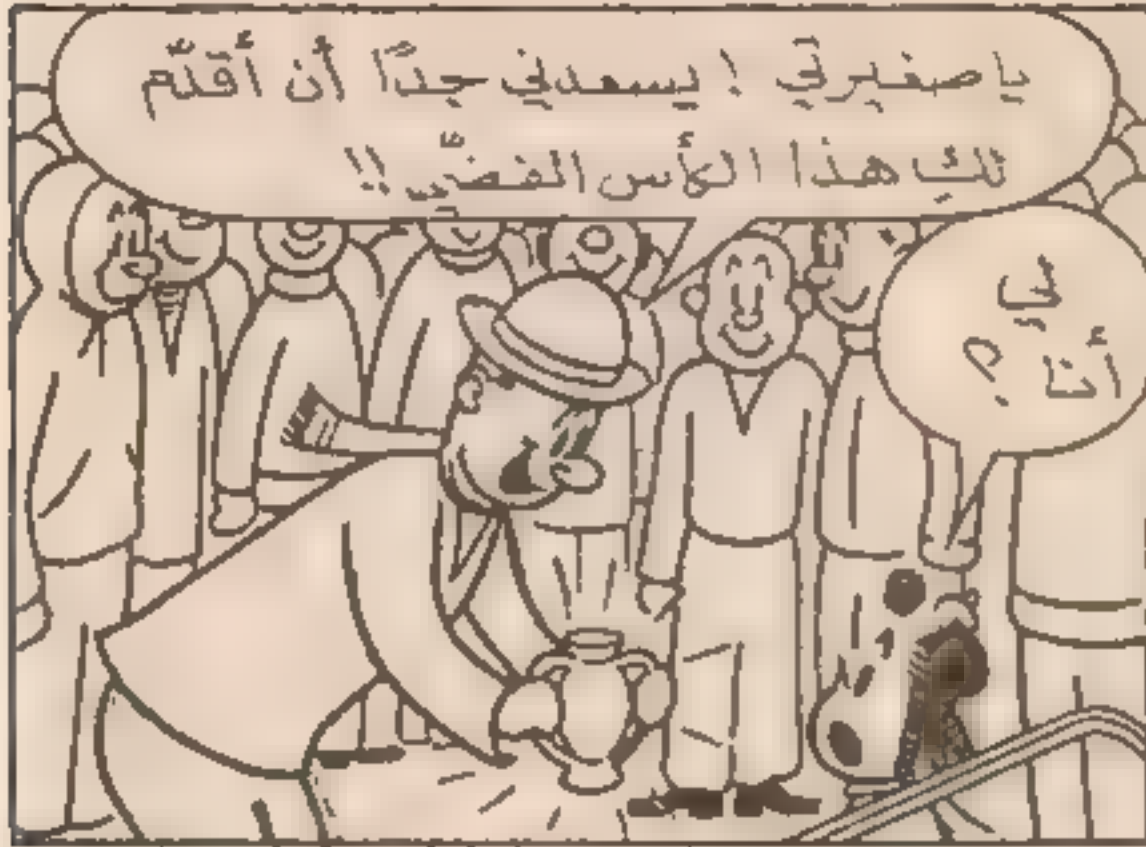 يا صغيرتي ! يسعدني جدّاً أن أقدّم
لكِ هذا الكأس الفضّي !!
لي
أنا ؟